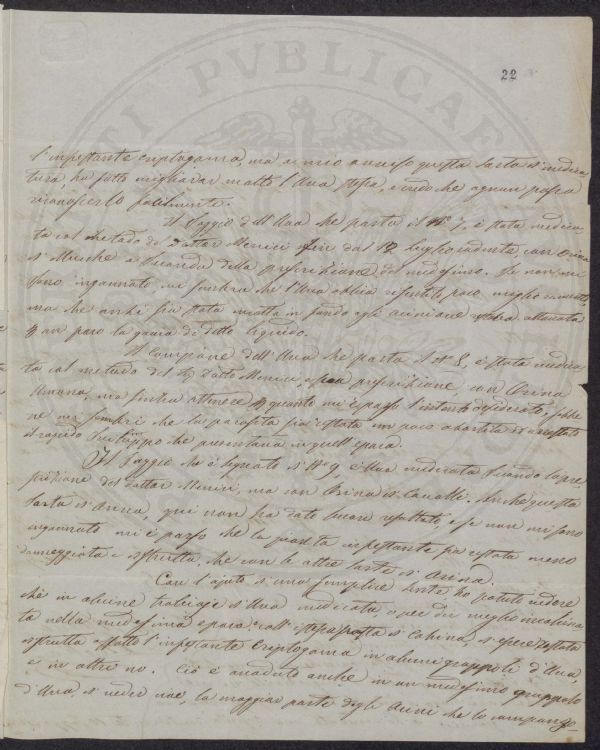 PVBLICAE
22
l'infestante criptogama, ma a mio avviso questa sorta di medica
tura, ha fatto migliorar molto l'Uva stessa, e credo che ognun possa
riconoscerlo facilmente.
Il Saggio dell'Uva che porta il N.° 7, è stata medica
ta col metodo del Dottor Menici fin dal 12 Luglio caduto, con Orina
di Mucche a seconda della prescrizione del medesimo. Se non mi
sono ingannato mi sembra che l'Uva abbia risentito poco meglio
ma che anzi sia stata in fondo agli acini
un poco la gomma di detto liquido.
Il Campione dell'Uva che porta il N. 8, è stata medica
ta col metodo del Dottor Menici, prescrizione, con Orina
Umana, ma senza ottenere quanto mi è parso l'intento desiderato, sebbe
ne mi sembri che la parassita sia restata un poco arrestato
il rapido sviluppo che presentava in quell'epoca.
Il Saggio che è segnato di N.° 9, è Uva medicata secondo la pre
scrizione del Dottor Menici, ma con Orina di Cavallo. Anche questa
sorta di Orina, qui non ha dato buon resultato, e se non mi sono
ingannato mi è parso che la pianta infestante sia restata meno
danneggiata e distrutta, che con le altre sorte di Orina.
Con l'ajuto di una semplice Lente ho potuto vedere
che in alcune tralciaje d'Uva medicata o per dir meglio
ta nella medesima epoca, coll'istessa di Calcina, si è restata
distrutta affatto l'infestante Criptogama in alcuni grappoli d'Uva,
e in altri no. Ciò è accaduto anche in un medesimo grappolo
d'Uva, di veder cioè, la maggior parte degli Acini che lo compongo